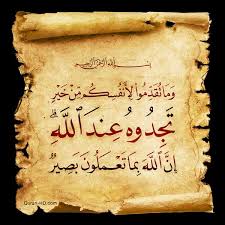 بسم الله الرحمن الرحيم
وَمَا تُقَدِّمُوا لِأَنفُسِكُم مِّنْ خَيْرٍ
تَجِدُوهُ عِندَ اللَّهِ ۗ
إِنَّ اللَّهَ بِمَا تَعْمَلُونَ بَصِيرٌ
Quran-HD.com